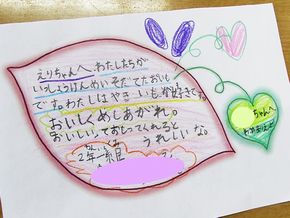 えりちゃんへ わたしたちが
いっしょうけんめいそだてたおいも
です。わたしはやきいもが好きです。
おいしくめしあがれ。
おいしい。っておもってくれると
うれしいな。
2年一組
ちゃんへ